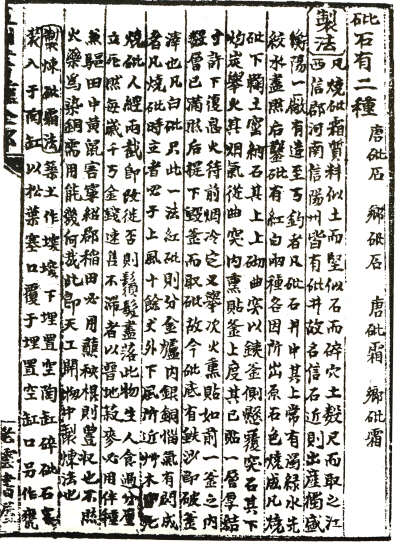 砒石有二種 唐砒石 鄉砒石 唐砒霜 鄉砒霜
製法 凡燒砒霜質料似土而堅似石而碎穴土数尺而取之江
西信郡河南信陽州皆有砒井故名信石近則出產獨盛
衡陽一廠有造至万鈞者凡砒石井中其上常有濁綠水先
絞水盡然后鑿砒有紅白兩種各因所出原石色燒成凡燒
砒下鞠土窑納石其上上砌曲突以鉄釜倒懸覆突口其下
灼炭舉火其烟氣從曲突內熏貼釜上度其已貼一層厚結
寸許下復息火待前烟冷定又舉次火熏貼如前一釜之內
数層已滿然后提下毀釜而取砒故今砒底有鉄沙即破釜
滓也凡白砒只此一法紅砒則分金爐內銀銅惱氣有閃成
者凡燒砒時立者必于上風十餘丈外下風所近艸木皆死
燒砒人經兩載即改徙否則鬚髮盡落此物生人食過分厘
立死然每歲千万金錢速售不滯者以晋地菽麥必用伴種
兼驅田中黄鼠害寧紹郡稻田必用蘸秧根則豐收也不然
火藥與染銅需用能幾何哉此即天工開物中製煉法也
製煉砒霜法 築土作壇壇下埋置空陶缸碎砒石
裝入于陶缸以松葉塞口覆于埋置空缸口另作甕